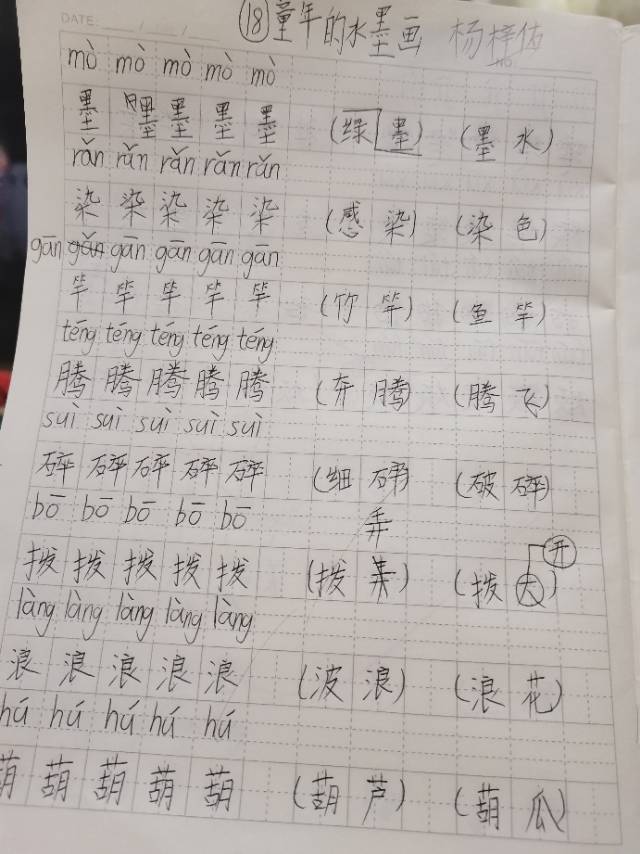 DATE: / /
⑱童年的水墨画 杨梓佑
NO
mò mò mò mò mò
墨 墨 墨 墨 墨 (绿墨) (墨水)
rǎn rǎn rǎn rǎn rǎn
染 染 染 染 染 (感染) (染色)
gān gān gān gān gān
竿 竿 竿 竿 竿 (竹竿) (鱼竿)
téng téng téng téng téng
腾 腾 腾 腾 腾 (奔腾) (腾飞)
suì suì suì suì suì
碎 碎 碎 碎 碎 (细碎) (破碎)
bō bō bō bō bō
弄
开
拨 拨 拨 拨 拨 (拨弄) (拨)
làng làng làng làng làng
浪 浪 浪 浪 浪 (波浪) (浪花)
hú hú hú hú hú
葫 葫 葫 葫 葫 (葫芦) (葫瓜)